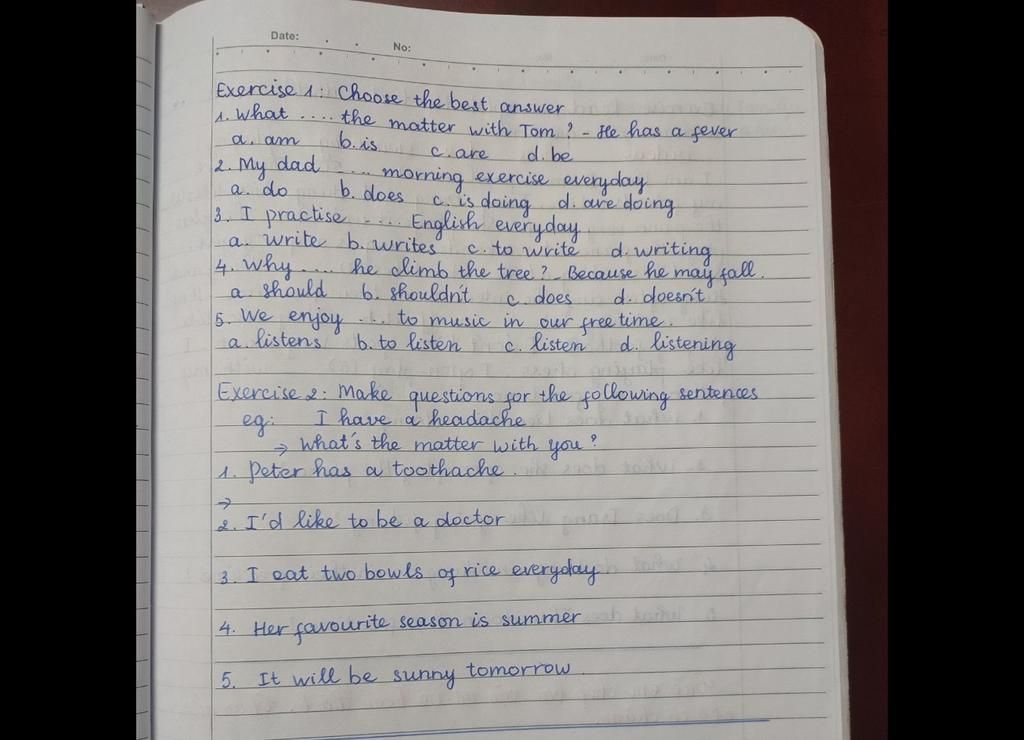 Date:
No:
Exercise 1: Choose the best answer
1. What .... the matter with Tom? - He has a fever
a. am b. is c. are d. be
2. My dad .... morning exercise everyday
a. do b. does c. is doing d. are doing
3. I practise .... English everyday.
a. write b. writes c. to write d. writing
4. Why .... he climb the tree? - Because he may fall.
a. should b. shouldn't c. does d. doesn't
5. We enjoy .... to music in our free time.
a. listens b. to listen c. listen d. listening
Exercise 2: Make questions for the following sentences
eg: I have a headache
→ What's the matter with you?
1. Peter has a toothache.
→
2. I'd like to be a doctor
3. I eat two bowls of rice everyday.
4. Her favourite season is summer
5. It will be sunny tomorrow.